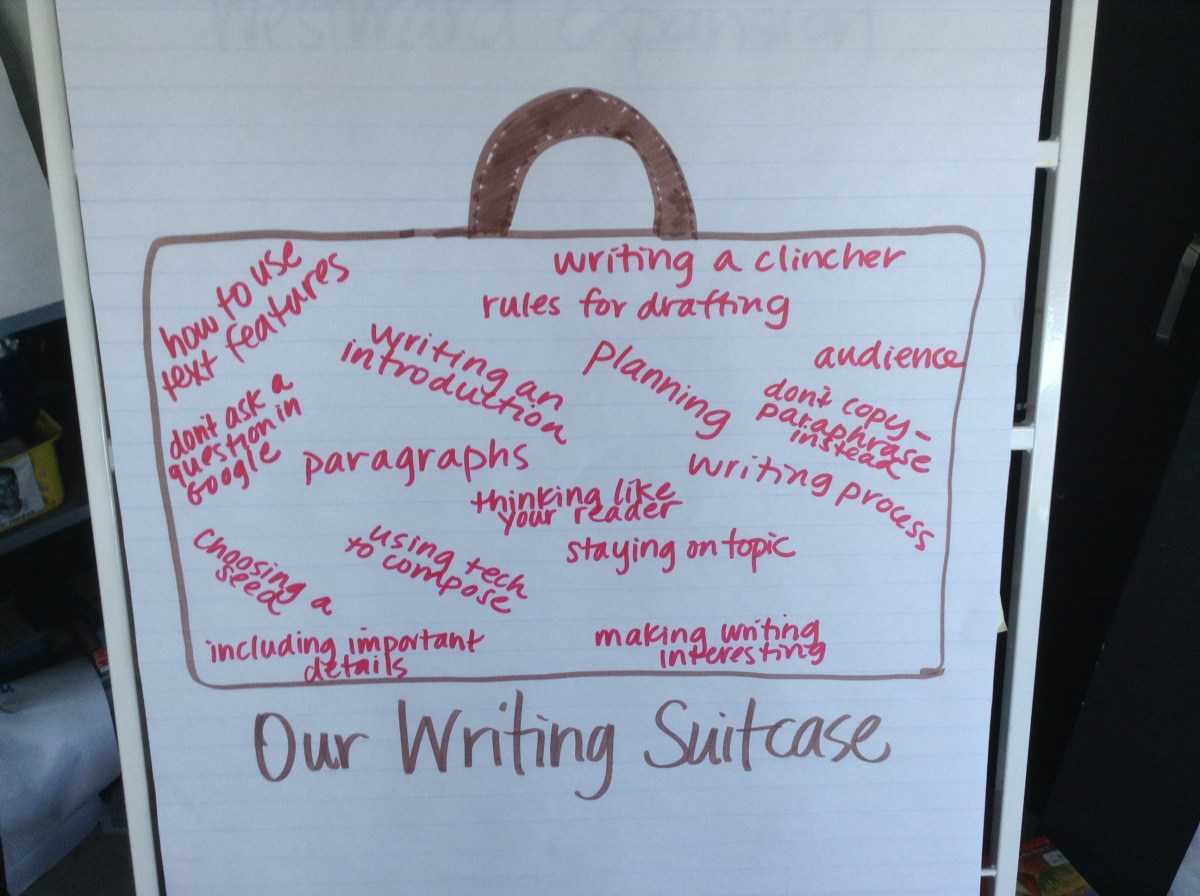 Westward Expansion
how to use
text features
writing a clincher
rules for drafting
writing an
introduction
planning
audience
don't copy-
paraphrase
instead
don't ask a
question in
Google
paragraphs
writing process
thinking like
your reader
staying on topic
choosing a
seed
using tech
to compose
including important
details
making writing
interesting
Our Writing Suitcase